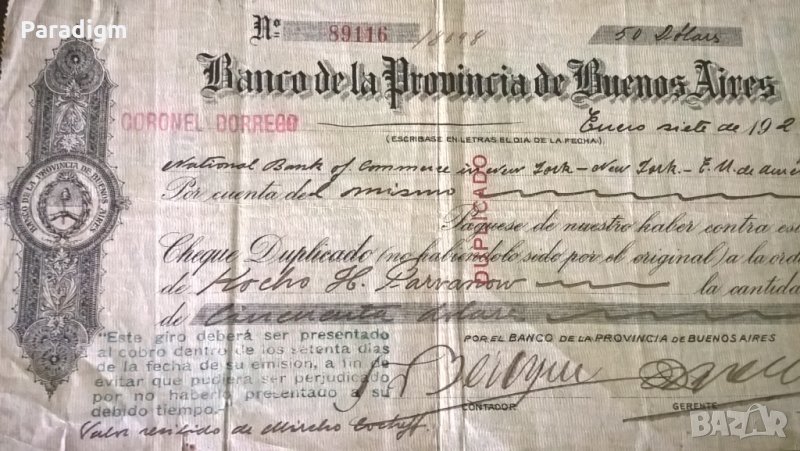 Paradigm
Nº 89116 /8098 50 Dólars
Banco de la Provincia de Buenos Aires
CORONEL DORREGO
Enero siete de 192
(ESCRIBASE EN LETRAS EL DIA DE LA FECHA)
National Bank of Commerce in New York - New York - E. U. de
Por cuenta del mismo
Páguese de nuestro haber contra
Cheque Duplicado (no habiéndolo sido por el original) a la
de Kocho H. Parvanow la
de Cincuenta dolars
DUPLICADO
BANCO DE LA PROVINCIA DE BUENOS AIRES
"Este giro deberá ser presentado
al cobro dentro de los setenta días
de la fecha de su emisión, a fin de
evitar que pudiera ser perjudicado
por no haberlo presentado a su
debido tiempo.-
POR EL BANCO DE LA PROVINCIA DE BUENOS AIRES
CONTADOR GERENTE
Valor recibido de Mircho
BAZAR